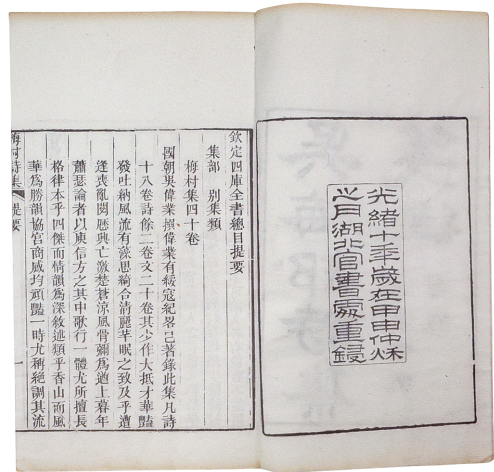 光緒十年歲在甲申仲秌
之月湖北官書處重鋟
欽定四庫全書總目提要
集部 別集類
梅村集四十卷
國朝吳偉業撰偉業有綏寇紀畧已著錄此集凡詩
十八卷詩餘二卷文二十卷其少作大抵才華豔
發吐納風流有藻思綺合清麗芊眠之致及乎遭
逢喪亂閱歷興亡激楚蒼涼風骨彌為遒上暮年
蕭瑟論者以庾信方之其中歌行一體尤所擅長
格律本乎四傑而情韻為深敘述類乎香山而風
華為勝韻協宮商感均頑豔一時尤稱絕調其流
梅村詩集 提要 一